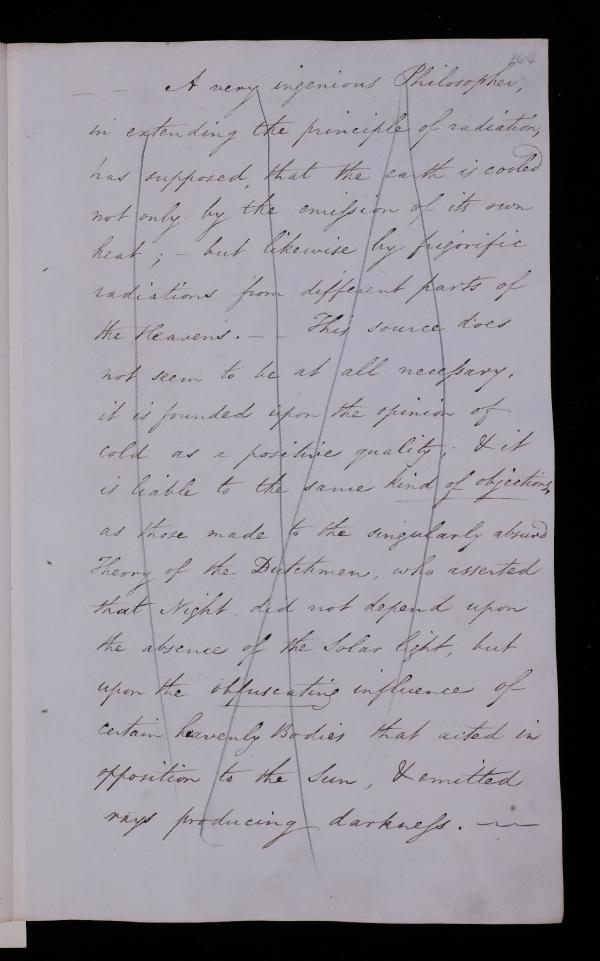 — — A very ingenious Philosopher,
in extending the principle of radiation,
has supposed, that the earth is cooled
not only by the emission of its own
heat ; – but likewise by frigorific
radiations from different parts of
the Heavens. – – This source does
not seem to be at all necessary,
it is founded upon the opinion of
cold as a positive quality ; & it
is liable to the same kind of objections,
as those made to the singularly absurd
Theory of the Dutchmen, who asserted
that Night did not depend upon
the absence of the Solar light, but
upon the obfuscating influence of
certain heavenly Bodies that acted in
opposition to the Sun, & emitted
rays producing darkness. —